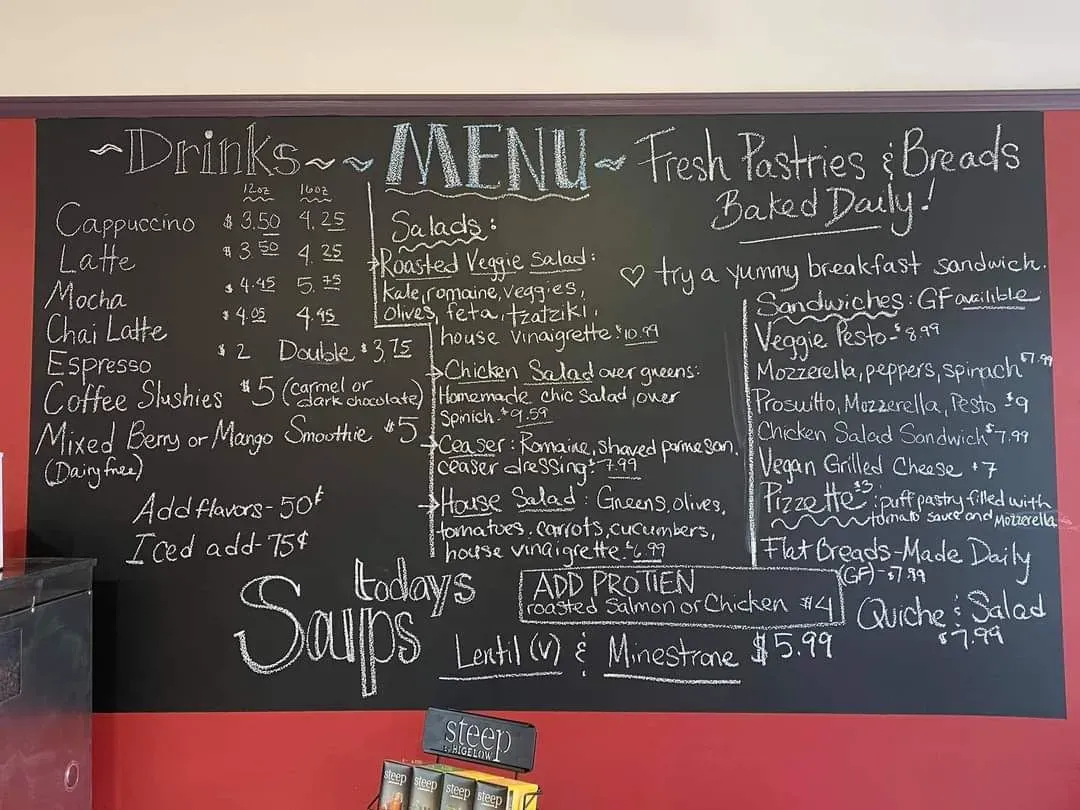 ~Drinks~
12oz 16oz
Cappuccino $3.50 4.25
Latte $3.50 4.25
Mocha $4.45 5.75
Chai Latte $4.05 4.95
Espresso $2 Double $3.75
Coffee Slushies $5 (carmel or
dark chocolate)
Mixed Berry or Mango Smoothie $5
(Dairy free)
Add flavors - 50¢
Iced add - 75¢
~MENU~
Salads:
Roasted Veggie Salad:
Kale, romaine, veggies,
olives, feta, tzatziki,
house vinaigrette $10.99
Chicken Salad over greens:
Homemade chic Salad, over
Spinich $9.59
Ceaser: Romaine, shaved parmesan,
ceaser dressing $7.99
House Salad: Greens, olives,
tomatoes, carrots, cucumbers,
house vinaigrette $6.99
Fresh Pastries & Breads
Baked Daily!
♡ try a yummy breakfast sandwich.
Sandwiches: GF availible
Veggie Pesto - $8.99
Mozzerella, peppers, spinach $7.99
Prosuitto, Mozzerella, Pesto $9
Chicken Salad Sandwich $7.99
Vegan Grilled Cheese $7
Pizzette $5: puff pastry filled with
tomato sauce and Mozzerella
Flat Breads - Made Daily
(GF) - $7.99
Quiche & Salad
$7.99
ADD PROTIEN
roasted Salmon or Chicken $4
todays
Soups
Lentil (V) & Minestrone $5.99
steep
BY BIGELOW
steep steep steep steep